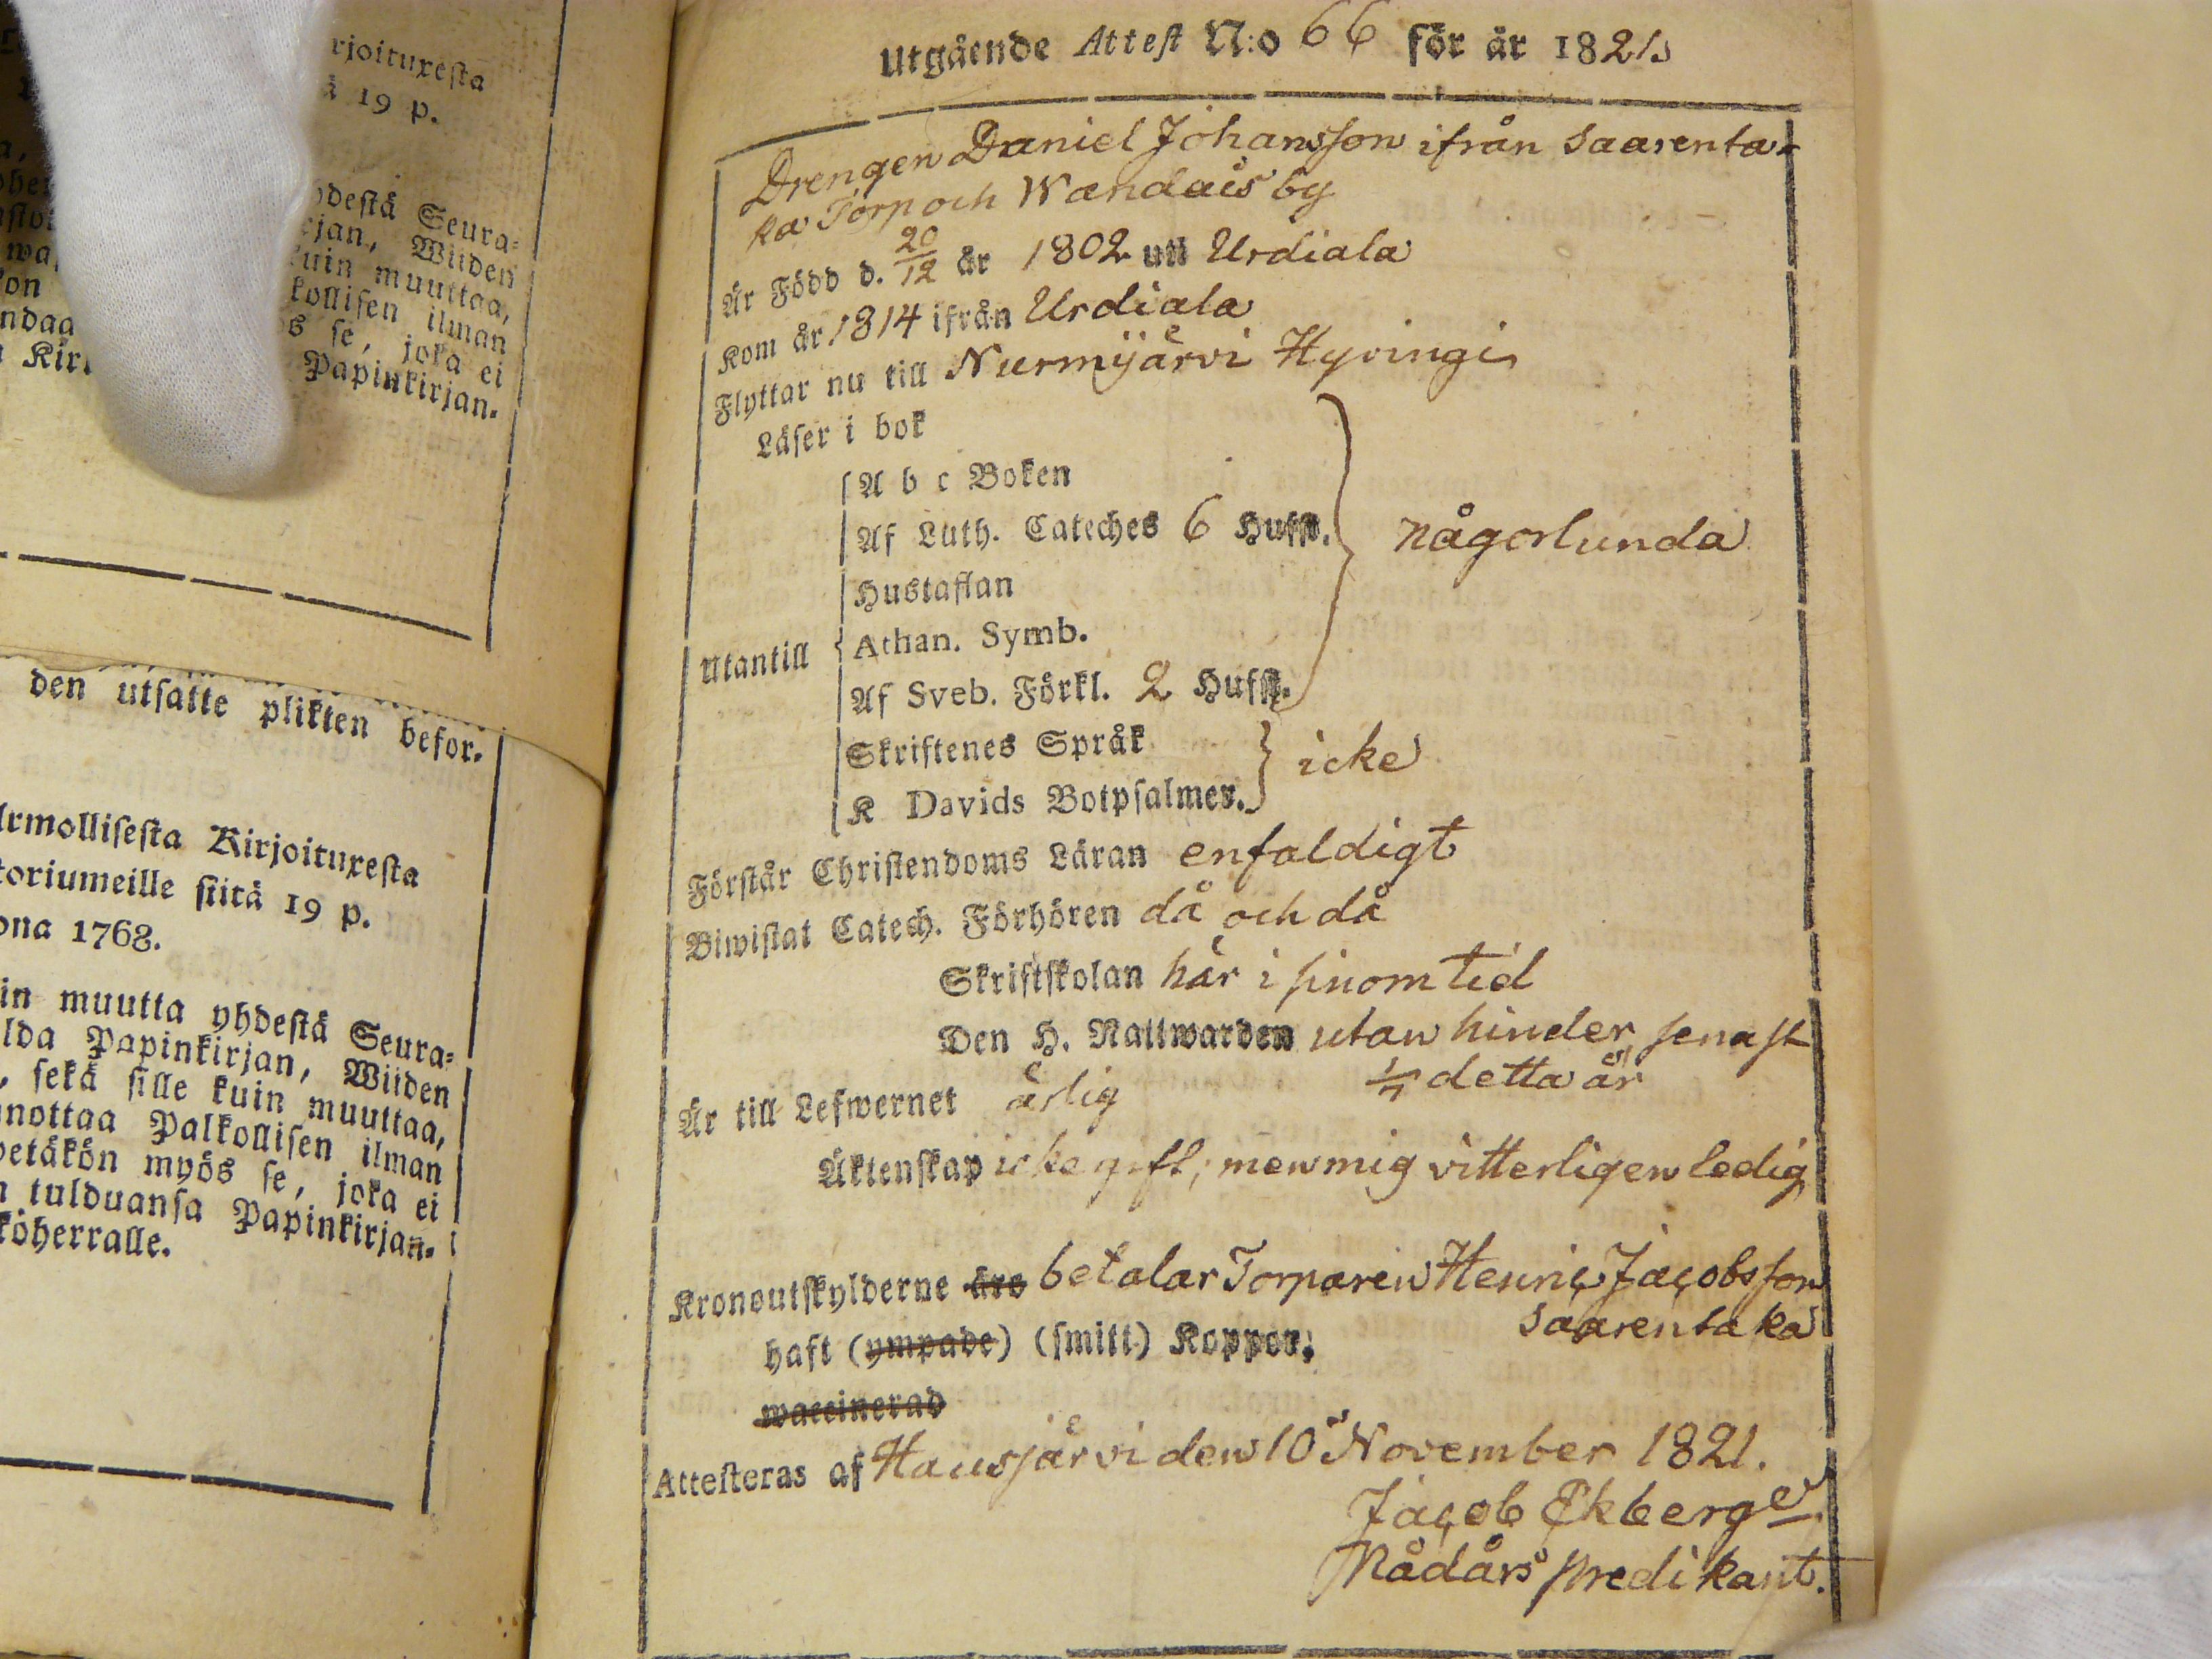 rjoituxesta
ä 19 p.
ydestä Seura-
rjan, Wiiden
kuin muuttaa,
kollisen ilman
s se, joka ei
Papinkirjan-
den utsatte plikten befor.
Armollisesta Kirjoituxesta
toriumeille siitä 19 p.
ona 1768.
in muutta yhdestä Seura-
lda Papinkirjan, Wiiden
, sekä sille kuin muuttaa,
nnottaa Palkollisen ilman
petäkön myös se, joka ei
n tulduansa Papinkirjan-
köherralle.
Utgående Attest N:o 66 för år 1821.
Drengen Daniel Johansson ifrån Saarenta-
ka Torp och Wandais by
Är Född d. 20/12 år 1802 uti Urdiala
Kom år 1814 ifrån Urdiala
Flyttar nu till Nurmijärvi Hyvingi
Läser i bok
A b c Boken
Af Luth. Cateches 6 Hufst. någorlunda
Hustaflan
Utantill Athan. Symb.
Af Sveb. Förkl. 2 Hufst.
Skriftenes Språk icke
K Davids Botpsalmer.
Förstår Christendoms Läran enfaldigt
Biwistat Catech. Förhören då och då
Skriftskolan här i sinom tid
Den H. Nattwarden utan hinder, senast
1/7 detta år
Är till Lefwernet ärlig
Äktenskap icke gift, men mig vitterligen ledig
Kronoutskylderne äro betalar Torparen Henric Jacobsson
Saarentaka
haft (ympade) (smitt) Koppor,
waccinerad
Attesteras af Hausjärvi den 10 November 1821.
Jacob Ekberg
Nådårs predikant.